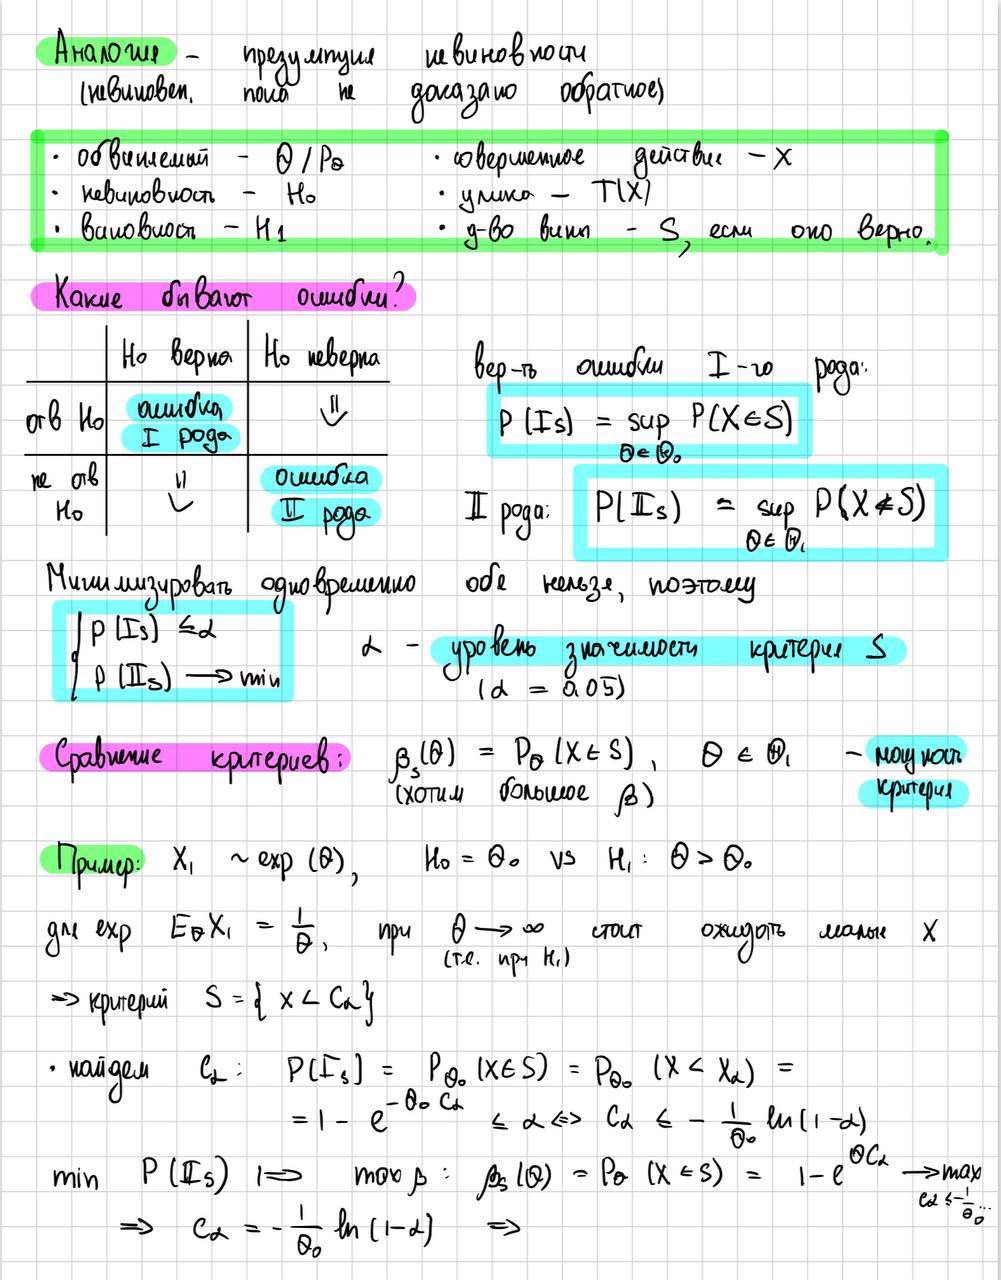 Аналогия – презумпция невиновности
(невиновен, пока не доказано обратное)
· обвиняемый – θ/Pθ
· невиновность – H₀
· виновность – H₁
· совершенное действие – X
· улика – T(X)
· д-во вины – S, если оно верно.
Какие бывают ошибки?
H₀ верна H₀ неверна
отв H₀ ошибка I рода ⇓
не отв H₀ ⇓ ошибка II рода
вер-ть ошибки I-го рода:
P(I_S) = sup_{θ∈Θ₀} P(X∈S)
II рода: P(II_S) = sup_{θ∈Θ₁} P(X∉S)
Минимизировать одновременно обе нельзя, поэтому
{ P(I_S) ≤ α
P(II_S) → min
α – уровень значимости критерия S
(α = 0.05)
Сравнение критериев: β_S(θ) = P_θ(X∈S), θ ∈ Θ₁ – мощность критерия
(хотим большое β)
Пример: X₁ ~ exp(θ), H₀ = θ₀ vs H₁: θ > θ₀
для exp E_θX₁ = 1/θ, при θ → ∞ стоит ожидать малые X
(т.е. при H₁)
⇒ критерий S = { x < C_α }
· найдем C_α: P(I_S) = P_θ₀(X∈S) = P_θ₀(X < X_α) =
= 1 – e^{–θ₀ C_α} ≤ α ⇔ C_α ≤ – 1/θ₀ ln(1–α)
min P(II_S) ⇔ max β: β_S(θ) = P_θ(X∈S) = 1 – e^{θC_α} → max_{C_α ≤ –1/θ₀ ...}
⇒ C_α = – 1/θ₀ ln(1–α) ⇒